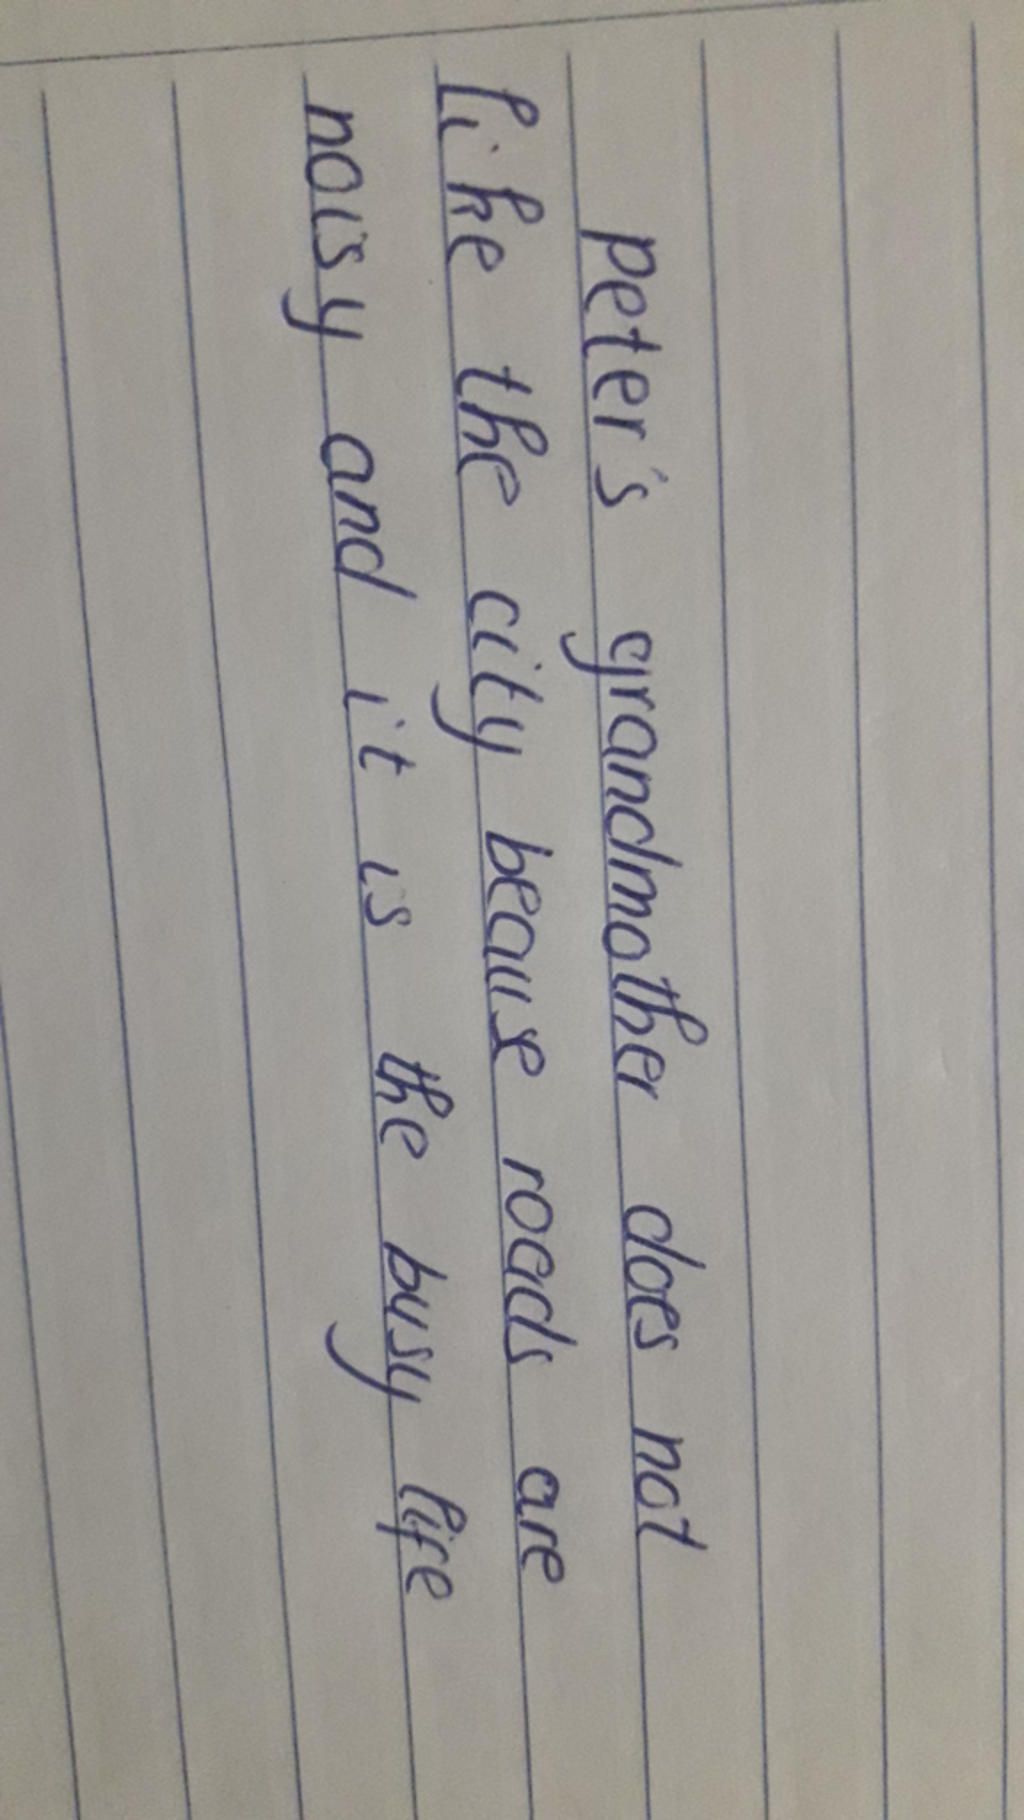 peter's grandmother does not
like the city beause roads are
noisy and it is the busy life